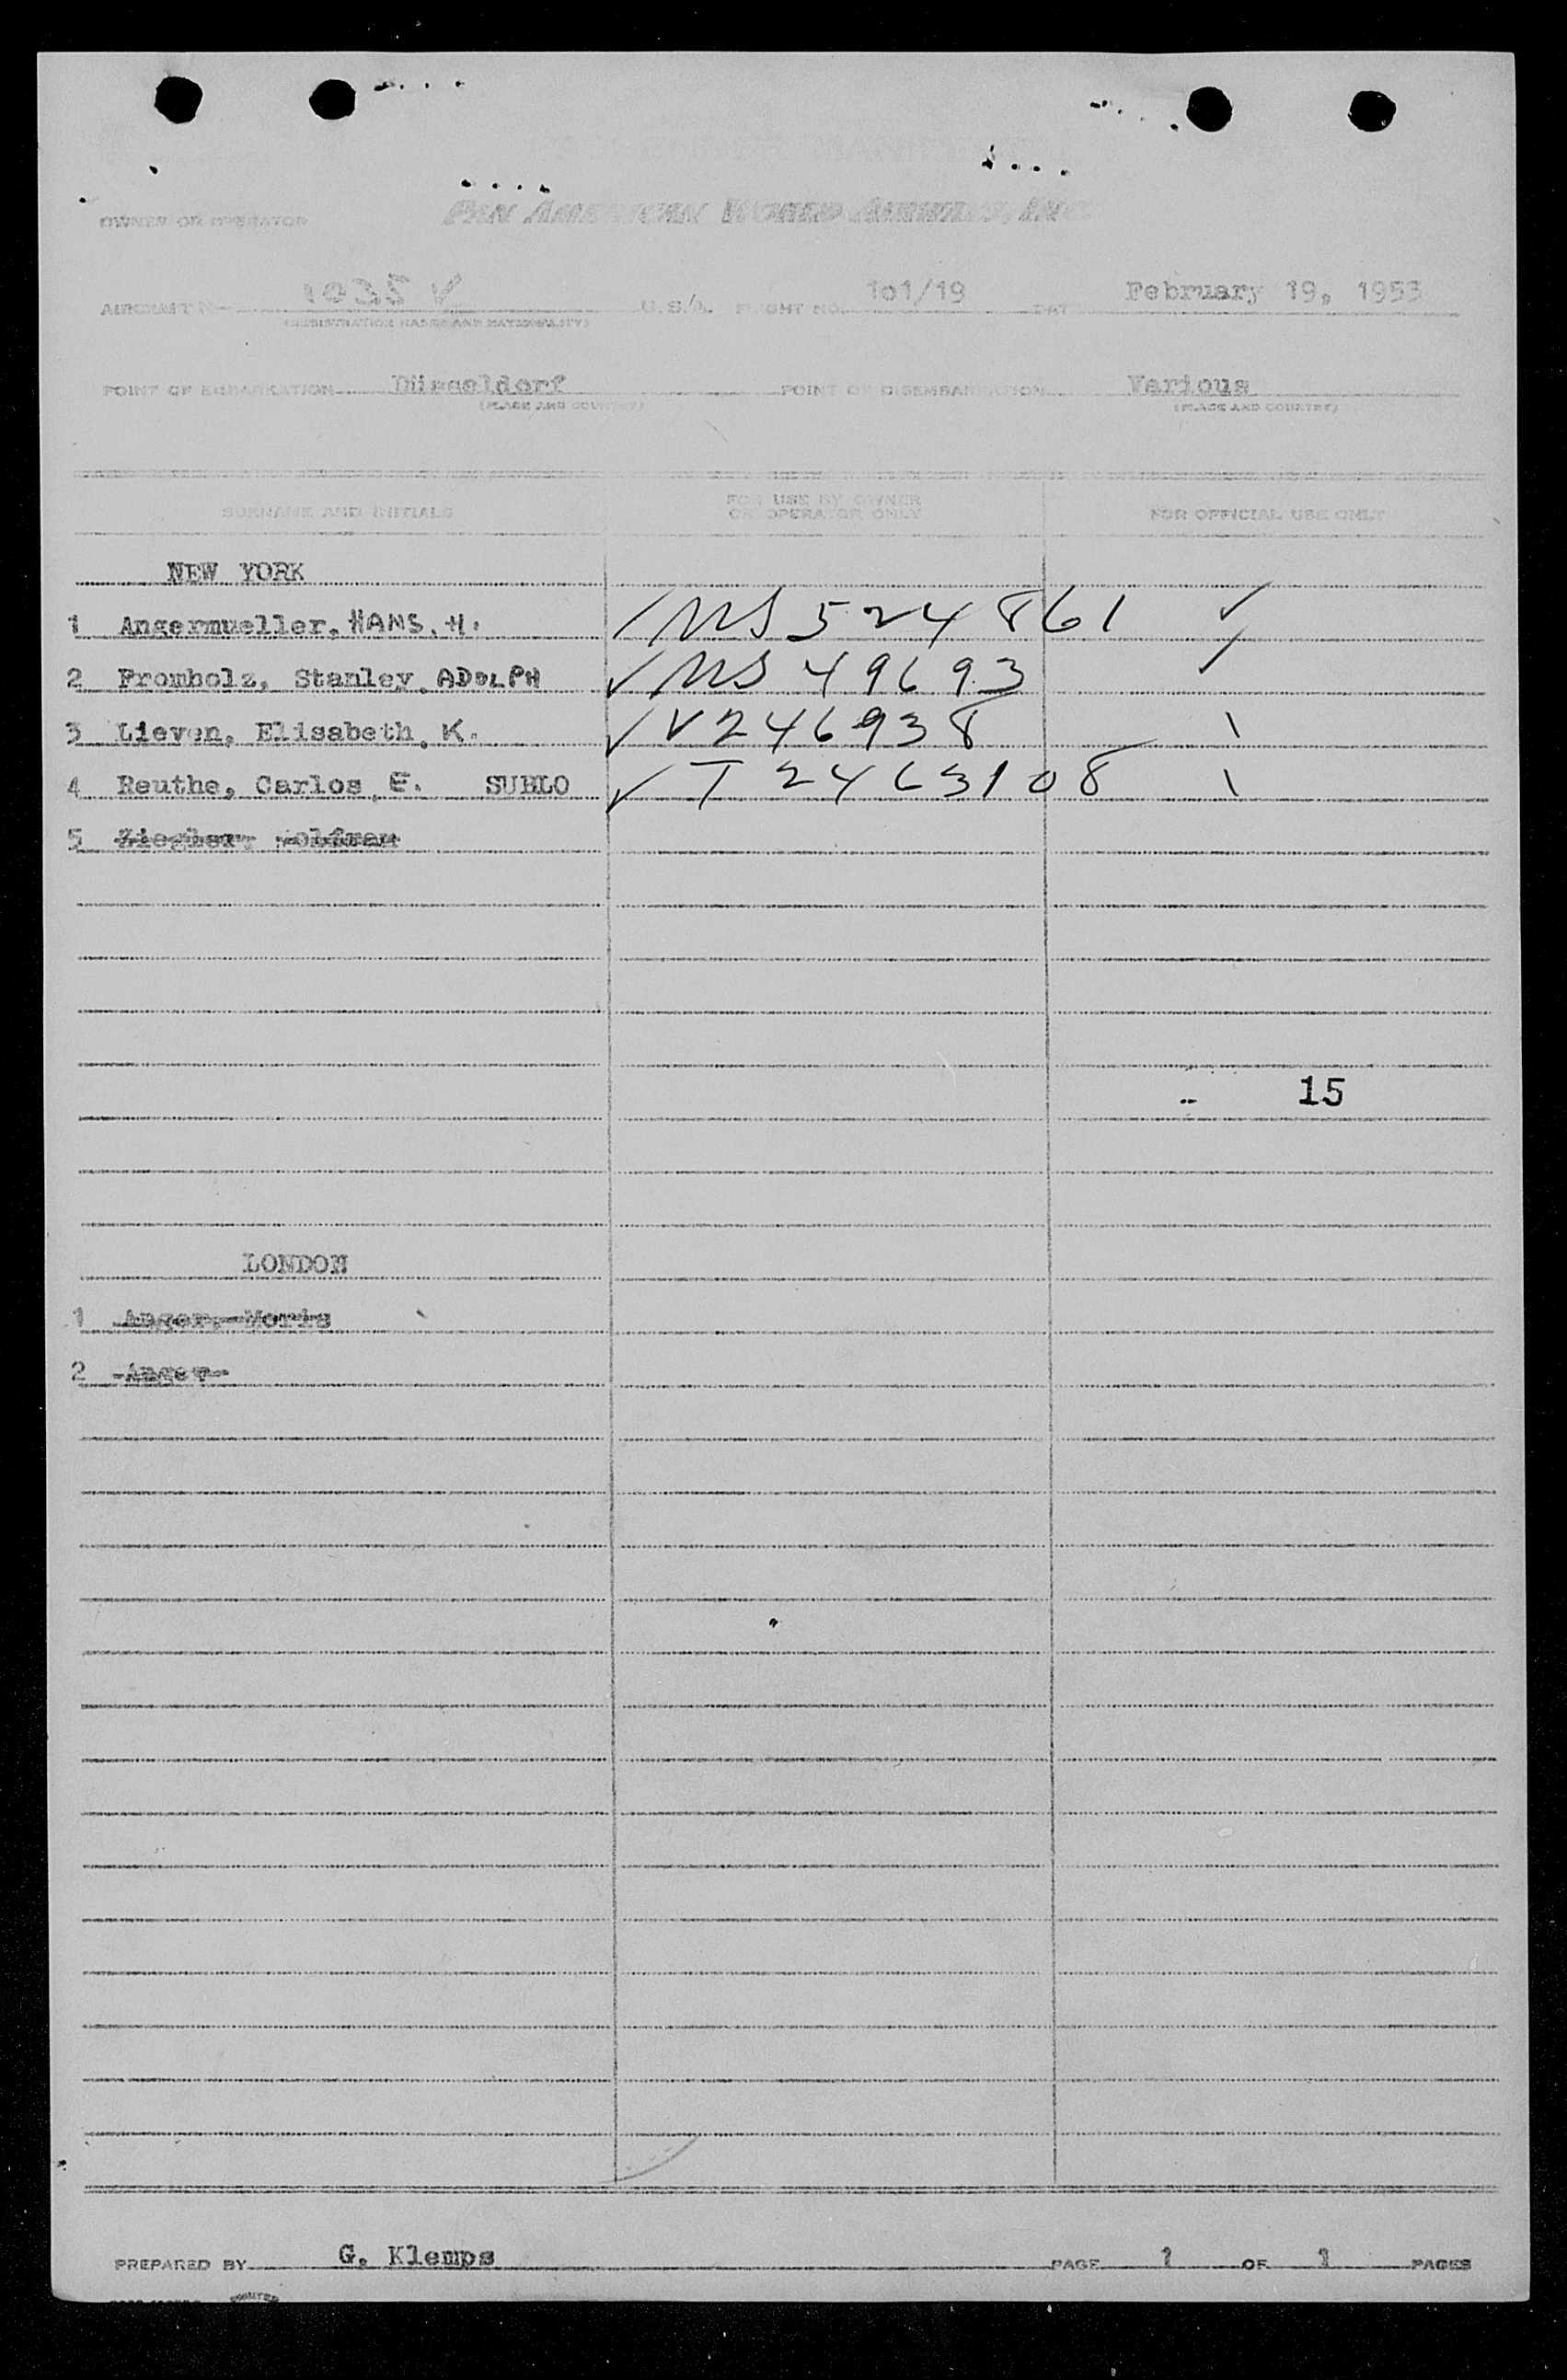 OWNER OR OPERATOR PAN AMERICAN WORLD AIRWAYS, INC.
AIRCRAFT N 1035 V U.S.A. FLIGHT NO. 1o1/19 DATE February 19, 1953
(REGISTRATION MARKS AND NATIONALITY)
POINT OF EMBARKATION Düsseldorf POINT OF DISEMBARKATION Various
(PLACE AND COUNTRY) (PLACE AND COUNTRY)
SURNAME AND INITIALS FOR USE BY OWNER OR OPERATOR ONLY FOR OFFICIAL USE ONLY
NEW YORK
1 Angermueller, HANS. H. ✓ 524861 ✓
2 Fromholz, Stanley, ADOLPH ✓ 49693 ✓
3 Lieven, Elisabeth, K. ✓ V246938 \
4 Reuthe, Carlos, E. SUBLO ✓ T2463108 \
5 Ziegler, Wolfram
15
LONDON
1 Anger, Moris
2 -Anger-
PREPARED BY G. Klemps PAGE 1 OF 1 PAGES